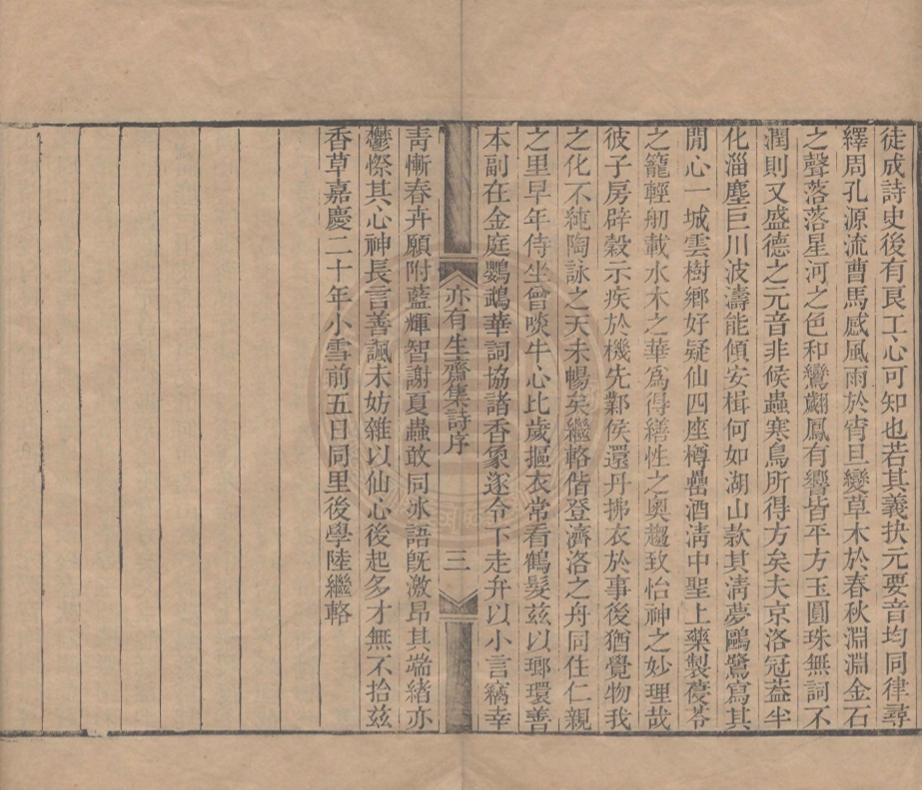 徒成詩史後有良工心可知也若其義抉元要音均同律尋
繹周孔源流曹馬感風雨於宵旦變草木於春秋淵淵金石
之聲落落星河之色和鸞翽鳳有響皆平方玉圓珠無詞不
潤則又盛德之元音非候蟲寒鳥所得方矣夫京洛冠葢半
化淄塵巨川波濤能傾安楫何如湖山款其清夢鷗鷺寫其
閒心一城雲樹鄉好疑仙四座樽罍酒淸中聖上藥製蔆苓
之籠輕舠載水木之華爲得繕性之奥趨致怡神之妙理哉
彼子房辟穀示疾於機先鄴侯還丹拂衣於事後猶覺物我
之化不純陶詠之天未暢矣繼輅偕登濟洛之舟同住仁親
之里早年侍坐曾啖牛心比歲摳衣常看鶴髮茲以瑯環善
本副在金庭鸚鵡華詞協諸香象遂令下走弁以小言竊幸
亦有生齋集詩序 三
靑慚春卉願附藍輝智謝夏蟲敢同氷語旣激昂其耑緒亦
鬱憏其心神長言善諷未妨雜以仙心後起多才無不拾茲
香草嘉慶二十年小雪前五日同里後學陸繼輅